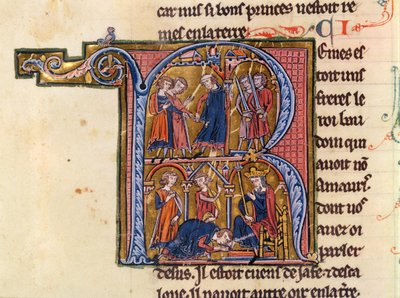 car nus si bons princes nestoit re
mes en la terre. CI
Remes es
toit uns
freres le
roi bau
doin qui
auoit nō
Amaurri
dont uos
auez oi
parler
desus. Il estoit cuens de iafe & desca
lone. Il nauoit autre oir en latre.